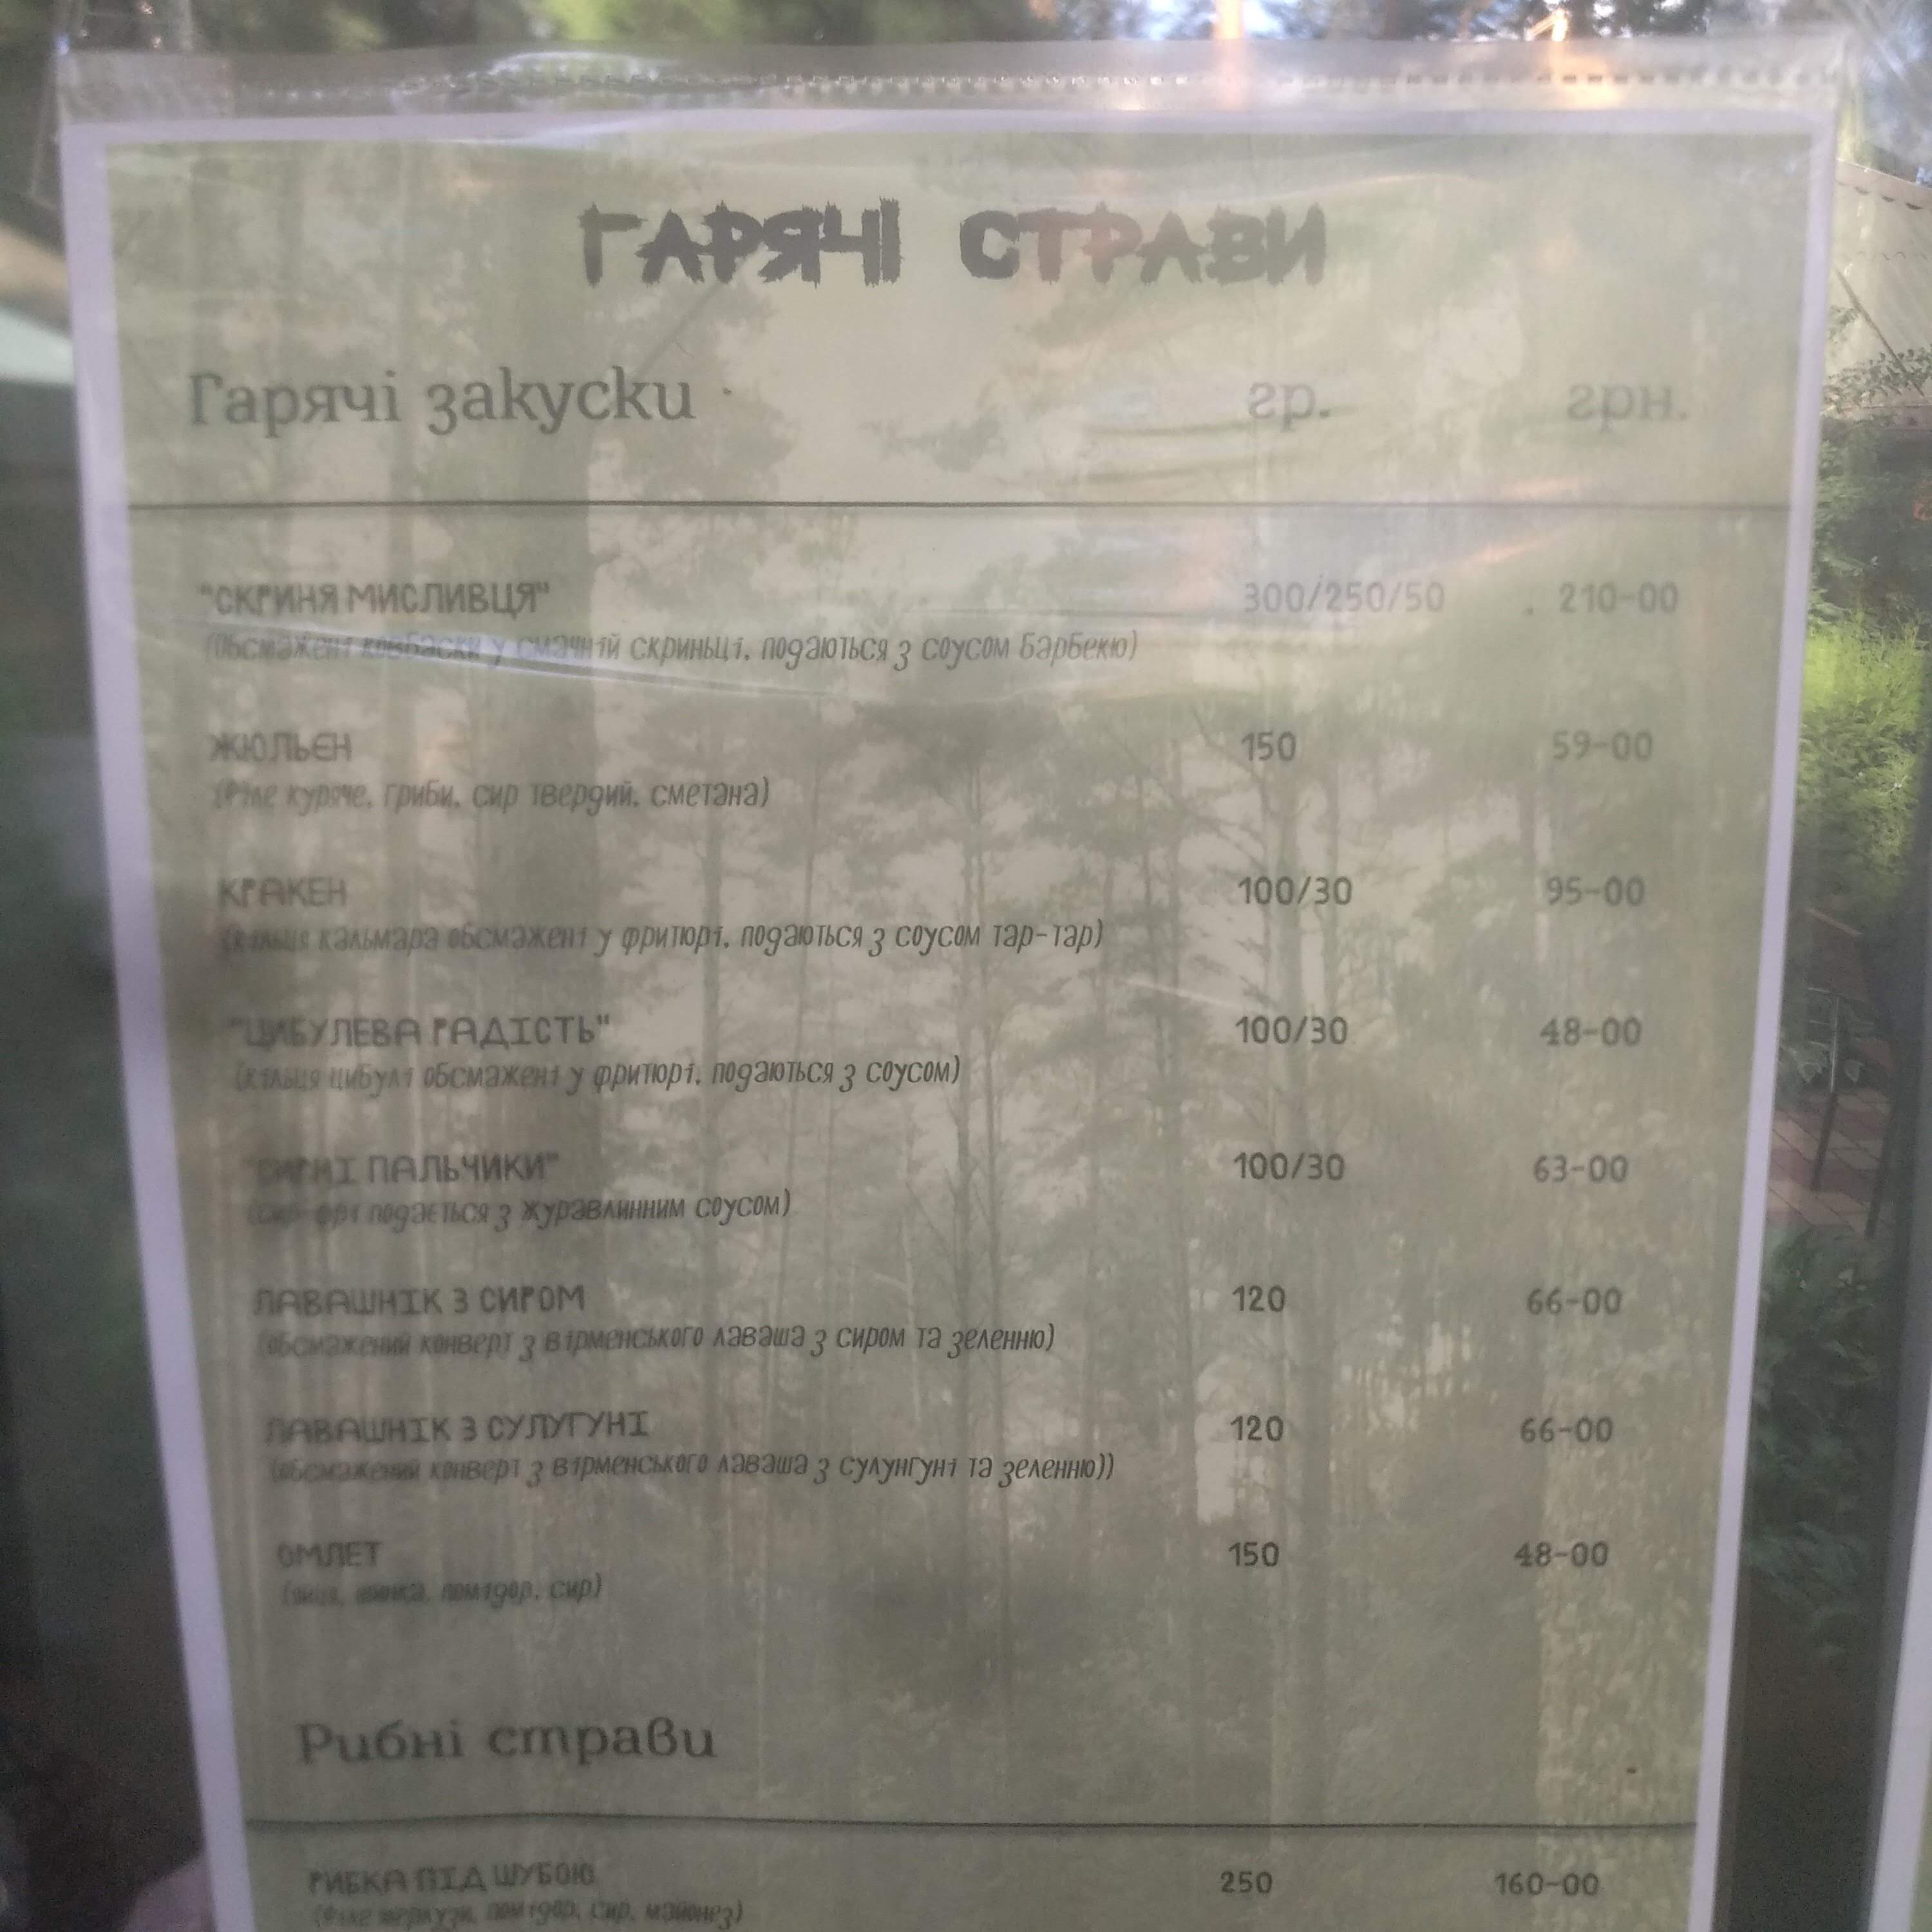 ГАРЯЧІ СТРАВИ
Гарячі закуски гр. грн.
"СКРИНЯ МИСЛИВЦЯ" 300/250/50 210-00
(Обсмажені ковбаски у смачній скриньці, подаються з соусом Барбекю)
ЖЮЛЬЄН 150 59-00
(Філе куряче, гриби, сир твердий, сметана)
КРАКЕН 100/30 95-00
(кільця кальмара обсмажені у фритюрі, подаються з соусом тар-тар)
"ЦИБУЛЕВА РАДІСТЬ" 100/30 48-00
(кільця цибулі обсмажені у фритюрі, подаються з соусом)
"СИРНІ ПАЛЬЧИКИ" 100/30 63-00
(сир фрі подається з журавлинним соусом)
ЛАВАШНІК З СИРОМ 120 66-00
(обсмажений конверт з вірменського лаваша з сиром та зеленню)
ЛАВАШНІК З СУЛУГУНІ 120 66-00
(обсмажений конверт з вірменського лаваша з сулунгуні та зеленню))
ОМЛЕТ 150 48-00
(яйця, шинка, помідор, сир)
Рибні страви
РИБКА ПІД ШУБОЮ 250 160-00
(Філе мерлузи, помідор, сир, майонез)